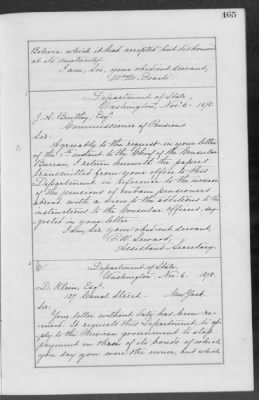 165
Bolivia which it had accepted but dishonored
at its maturity.
I am, Sir, your obedient servant,
Wm M. Evarts.
Department of State,
Washington, Nov. 6- 1878.
J. A. Bentley, Esqr
Commissioner of Pensions
Sir:
Agreeably to the request in your letter
of the 1st instant to the Chief of the Consular
Bureau I return herewith the papers
transmitted from your office to this
Department in reference to the increase
of the pensions of certain pensioners
abroad with a view to the additions to the
instructions to the Consular officers sug-
gested in your letter.
I am, Sir, your obedient servant,
F. W. Seward,
Assistant Secretary.
Department of State,
Washington, Nov. 6. 1878.
D. Klein, Esqr.
137 Canal Street - New York.
Sir:
Your letter without date has been re-
ceived. It requests this Department to ap-
ply to the Mexican government to stop
payment on those of its bonds of which
you say you were the owner, but which